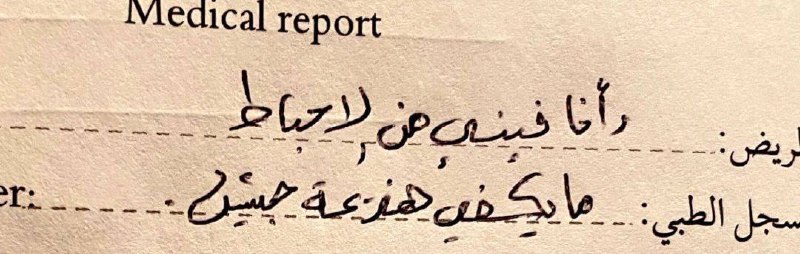 Medical report
ريض: وأنا فيني من الإحباط
er: سجل الطبي: ما يكفي هزيمة جيش.